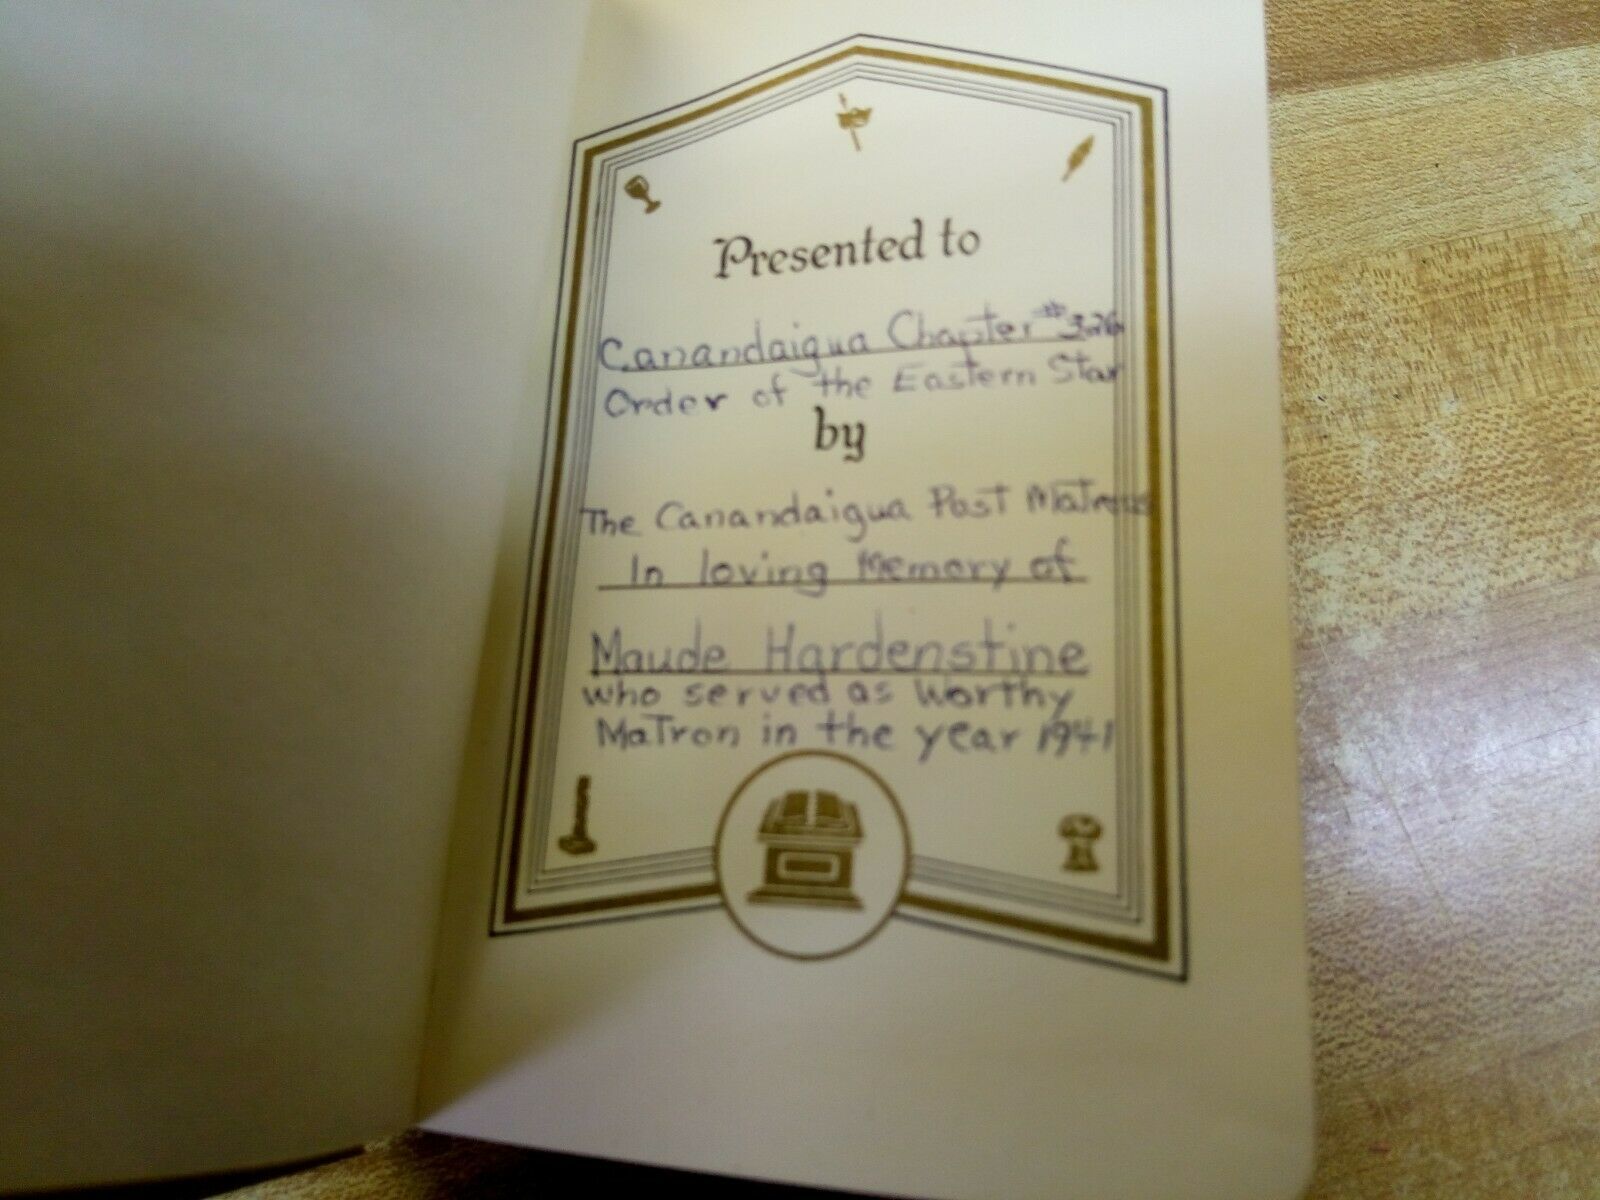 Presented to
Canandaigua Chapter #326
Order of the Eastern Star
by
The Canandaigua Past Matrons
In loving Memory of
Maude Hardenstine
who served as Worthy
Matron in the year 1941